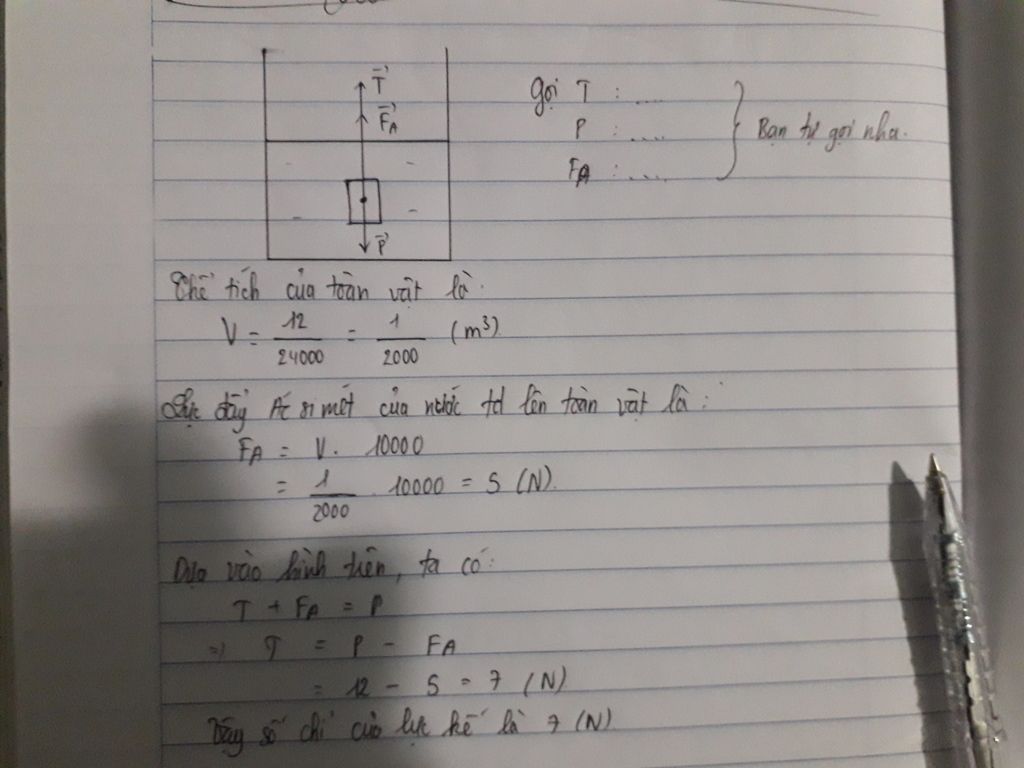 T⃗
F⃗A
P⃗
Gọi T : ....
P : ....
FA : ....
Bạn tự gọi nha.
Thể tích của toàn vật là:
V = 12/24000 = 1/2000 (m³)
Lực đẩy Ác si mét của nước td lên toàn vật là:
FA = V. 10000
= 1/2000 . 10000 = 5 (N).
Dựa vào hình trên, ta có:
T + FA = P
=> T = P - FA
= 12 - 5 = 7 (N)
Vậy số chỉ của lực kế là 7 (N)